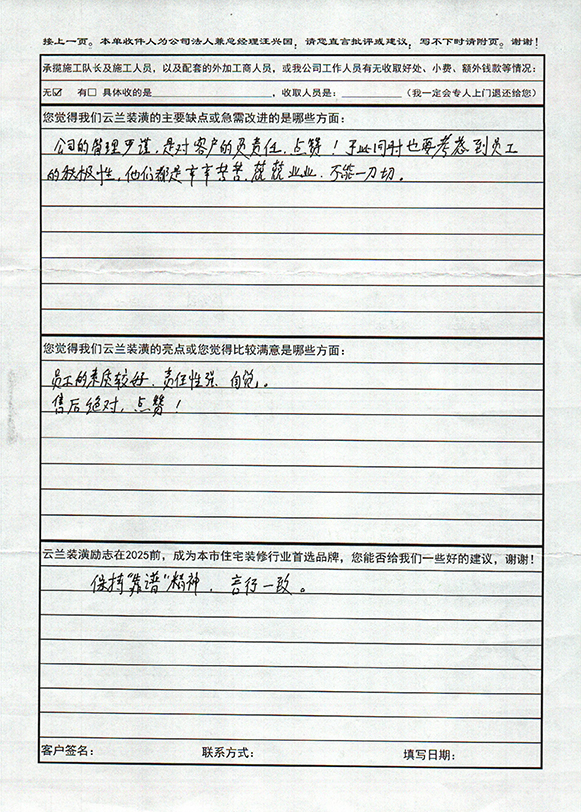 接上一页。本单收件人为公司法人兼总经理汪兴国，请您直言批评或建议，写不下时请附页。谢谢！
承揽施工队长及施工人员，以及配套的外加工商人员，或我公司工作人员有无收取好处、小费、额外钱款等情况：
无☑ 有□ 具体收的是________，收取人员是：________（我一定会专人上门退还给您）
您觉得我们云兰装潢的主要缺点或急需改进的是哪些方面：
公司的管理严谨，是对客户的负责任，点赞！于此同时也要考虑到员工
的积极性，他们都是辛辛苦苦，兢兢业业，不能一刀切。
您觉得我们云兰装潢的亮点或您觉得比较满意是哪些方面：
员工的素质较好、责任性强、自觉。
售后绝对，点赞！
云兰装潢励志在2025前，成为本市住宅装修行业首选品牌，您能否给我们一些好的建议，谢谢！
保持“靠谱”精神，言行一致。
客户签名： 联系方式： 填写日期：